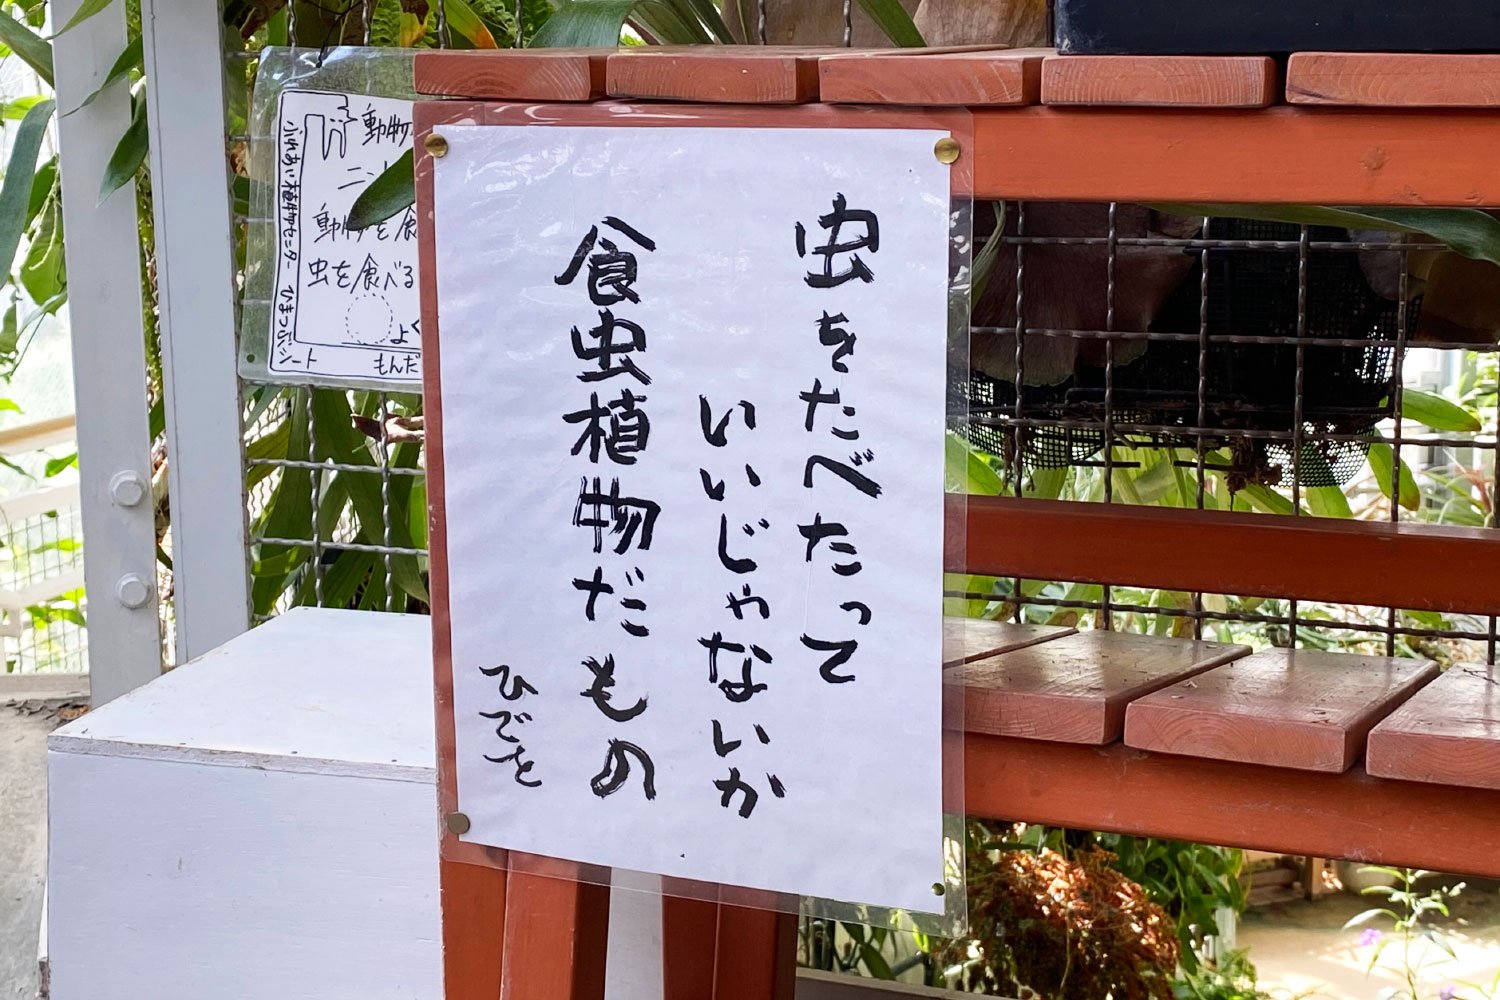 虫をたべたって
いいじゃないか
食虫植物だもの
ひでを
動物
ニッ
動物を食
虫を食べる
よく
もんだ
ふれあい植物センター ひまつぶシート